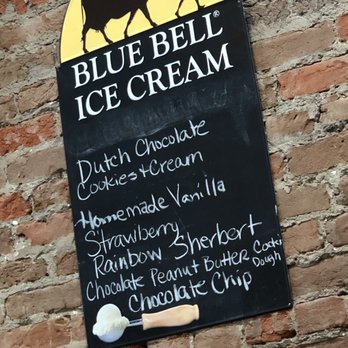 BLUE BELL®
ICE CREAM
Dutch Chocolate
Cookies + Cream
Homemade Vanilla
Strawberry
Rainbow Sherbert
Chocolate Peanut Butter Cookie Dough
Chocolate Chip